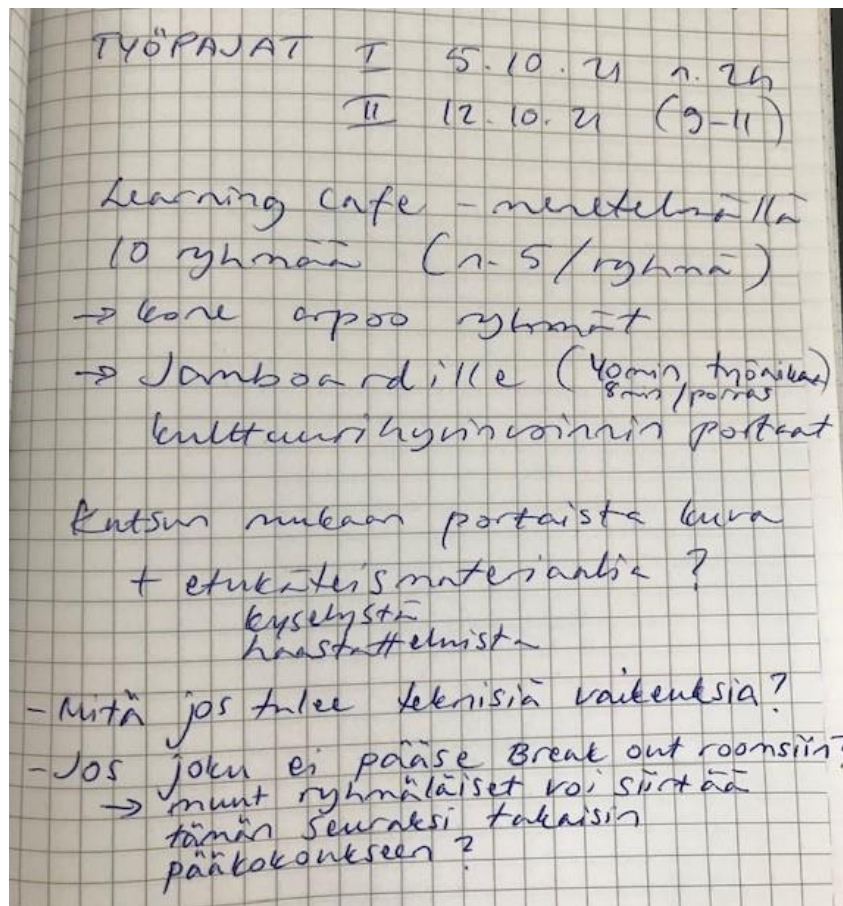 TYÖPAJAT I 5.10.21 n. 2h
II 12.10.21 (9-11)
Learning cafe - menetelmällä
10 ryhmää (n. 5/ryhmä)
→ kone arpoo ryhmät
→ Jamboardille (40 min työaikaa)
8 min/porras
kulttuurihyvinvoinnin portaat
Kutsun mukaan portaista kuva
+ etukäteismateriaalia ?
kyselystä
haastatteluista
- Mitä jos tulee teknisiä vaikeuksia?
- Jos joku ei pääse Break out roomsiin?
→ muut ryhmäläiset voi siirtää
tämän seuraksi takaisin
pääkokoukseen ?